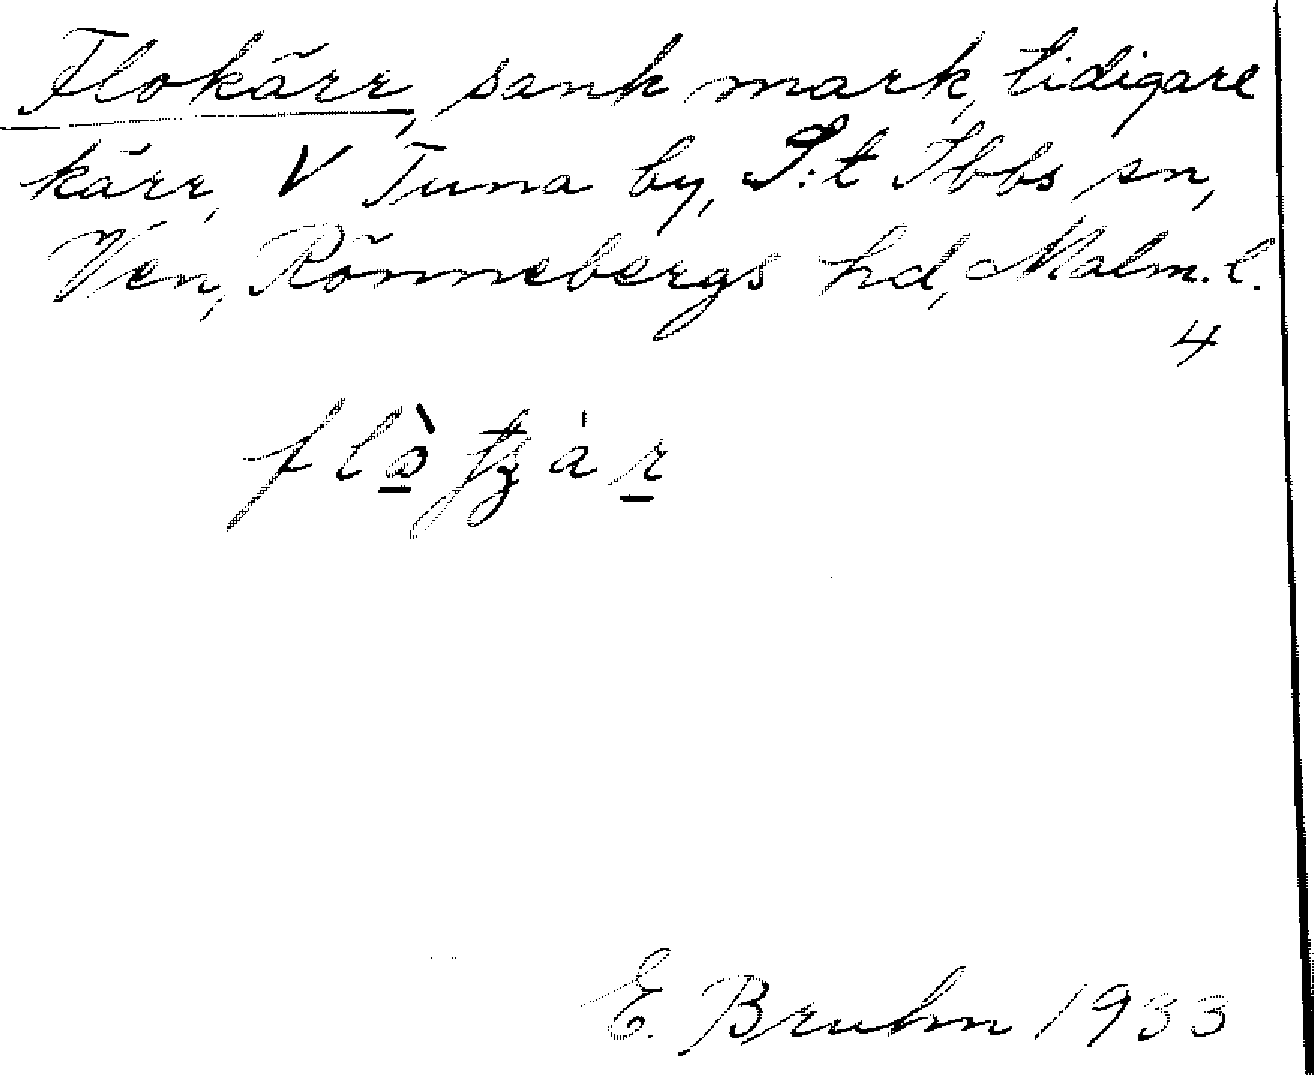 Flokärr, sank mark, tidigare
kärr, V Tuna by, S:t Ibbs sn,
Ven, Rönnebergs hd, Malm.l.
4
E. Bruhn 1933